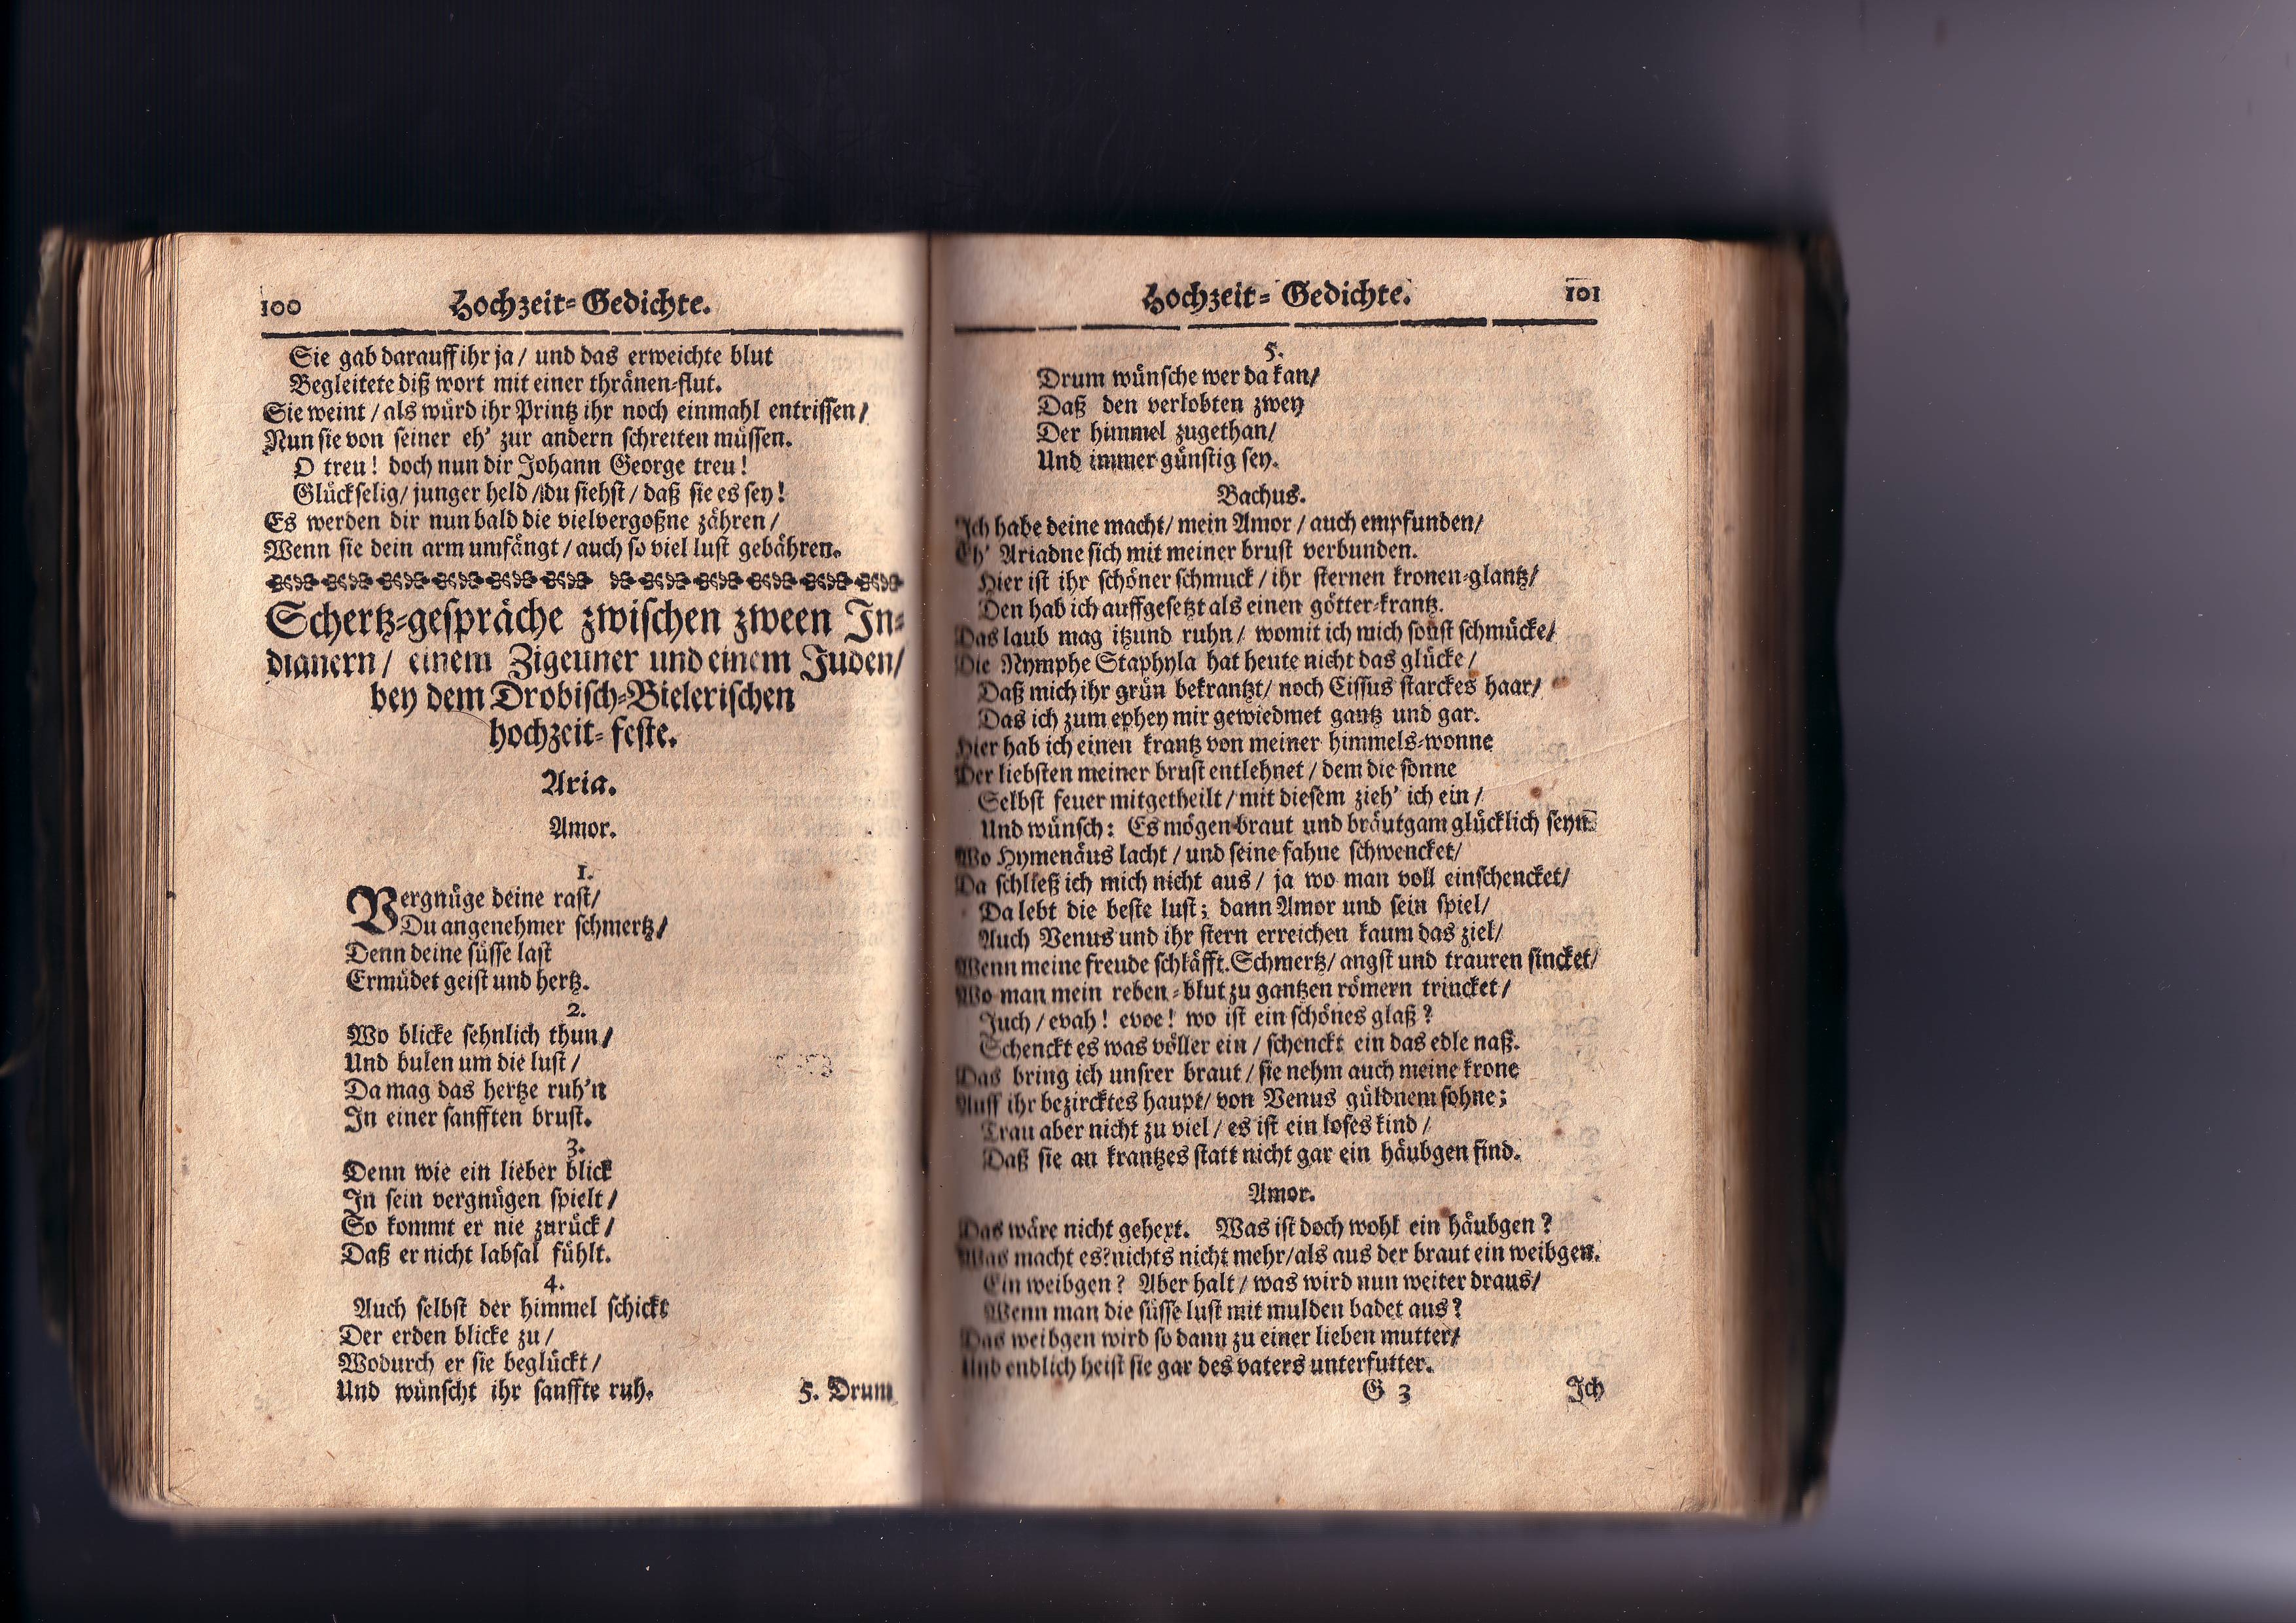 100 Hochzeit-Gedichte.
Sie gab darauff ihr ja / und das erweichte blut
Begleitete diß wort mit einer thränen-flut.
Sie weint / als würd ihr Printz ihr noch einmahl entrissen /
Nun sie von seiner eh' zur andern schreiten müssen.
O treu! doch nun dir Johann George treu!
Glückselig / junger held / du siehst / daß sie es sey!
Es werden dir nun bald die vielvergoßne zähren /
Wenn sie dein arm umfängt / auch so viel lust gebähren.
Schertz-gespräche zwischen zween In-
dianern / einem Zigeuner und einem Juden /
bey dem Drobisch-Bielerischen
hochzeit-feste.
Aria.
Amor.
1.
Vergnüge deine rast /
Du angenehmer schmertz /
Denn deine süsse last
Ermüdet geist und hertz.
2.
Wo blicke sehnlich thun /
Und bulen um die lust /
Da mag das hertze ruh'n
In einer sanfften brust.
3.
Denn wie ein lieber blick
In sein vergnügen spielt /
So kommt er nie zurück /
Daß er nicht labsal fühlt.
4.
Auch selbst der himmel schickt
Der erden blicke zu /
Wodurch er sie beglückt /
Und wünscht ihr sanffte ruh.
5. Drum
Hochzeit-Gedichte. 101
5.
Drum wünsche wer da kan /
Daß den verlobten zwey
Der himmel zugethan /
Und immer günstig sey.
Bachus.
Ich habe deine macht / mein Amor / auch empfunden /
Eh' Ariadne sich mit meiner brust verbunden.
Hier ist ihr schöner schmuck / ihr sternen kronen-glantz /
Den hab ich auffgesetzt als einen götter-krantz.
Das laub mag itzund ruhn / womit ich mich sonst schmücke /
Die Nymphe Staphyla hat heute nicht das glücke /
Daß mich ihr grün bekrantzt / noch Cissus starckes haar /
Das ich zum ephey mir gewiedmet gantz und gar.
Hier hab ich einen krantz von meiner himmels-wonne
Der liebsten meiner brust entlehnet / dem die sonne
Selbst feuer mitgetheilt / mit diesem zieh' ich ein /
Und wünsch: Es mögen braut und bräutgam glücklich seyn.
Wo Hymenäus lacht / und seine fahne schwencket /
Da schließ ich mich nicht aus / ja wo man voll einschencket /
Da lebt die beste lust; dann Amor und sein spiel /
Auch Venus und ihr stern erreichen kaum das ziel /
Wenn meine freude schläfft. Schmertz / angst und trauren sincket /
Wo man mein reben-blut zu gantzen römern trincket /
Juch / evah! evoe! wo ist ein schönes glaß?
Schenckt es was völler ein / schenckt ein das edle naß.
Das bring ich unsrer braut / sie nehm auch meine krone
Auff ihr bezircktes haupt / von Venus güldnem sohne;
Trau aber nicht zu viel / es ist ein loses kind /
Daß sie an krantzes statt nicht gar ein häubgen find.
Amor.
Das wäre nicht gehext. Was ist doch wohl ein häubgen?
Was macht es? nichts nicht mehr / als aus der braut ein weibgen.
Ein weibgen? Aber halt / was wird nun weiter draus /
Wenn man die süsse lust mit mulden badet aus?
Das weibgen wird so dann zu einer lieben mutter /
Und endlich heist sie gar des vaters unterfutter.
G 3 Ich